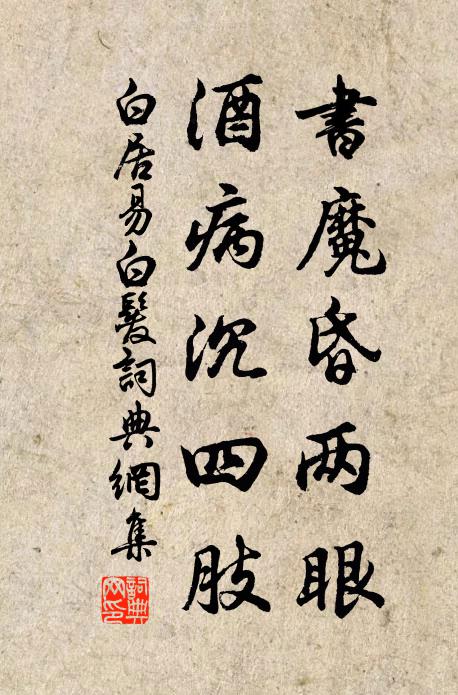 書魔昏两眼
酒病沉四肢
白居易白髮詞典網集
詞典网印